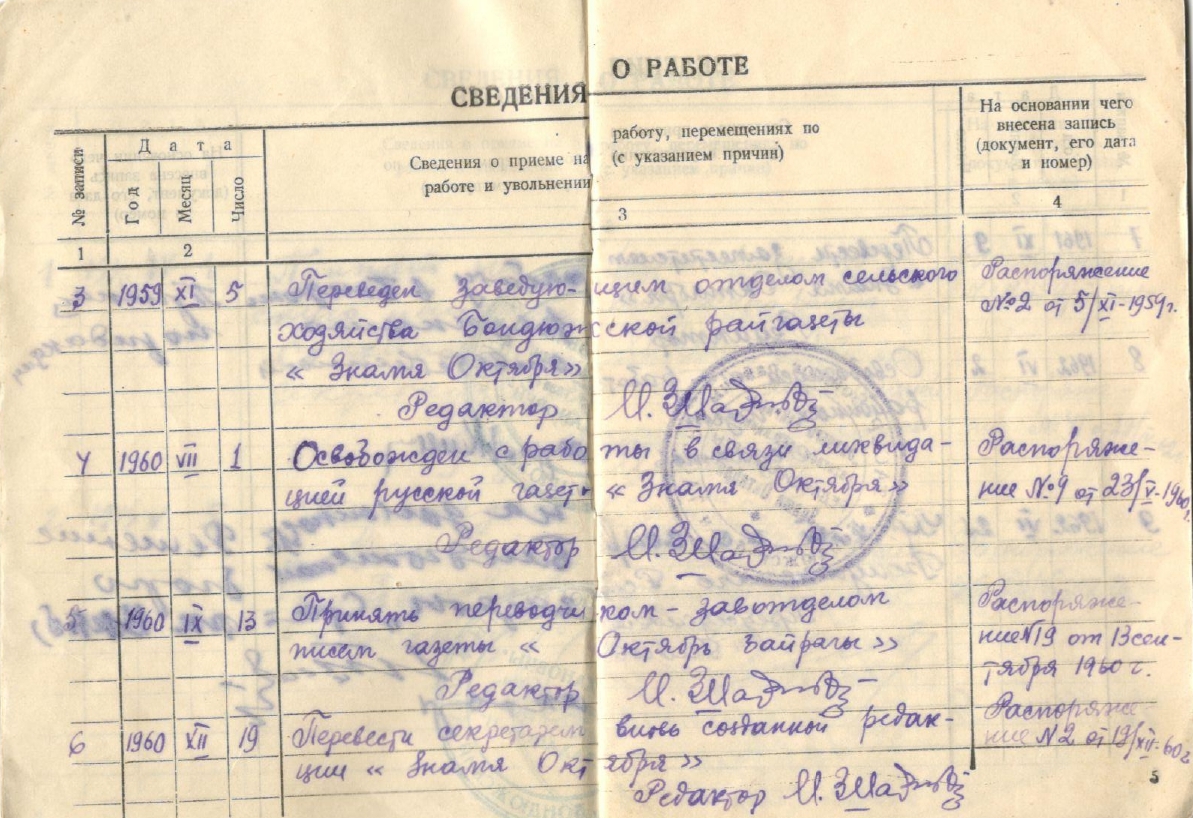 СВЕДЕНИЯ О РАБОТЕ
№ записи
Дата
Год
Месяц
Число
Сведения о приеме на работу, перемещениях по
работе и увольнении (с указанием причин)
На основании чего
внесена запись
(документ, его дата
и номер)
1 2 3 4
3 1959 XI 5 Переведен заведую- щим отделом сельского Распоряжение
хозяйства Бондюжской райгазеты №2 от 5/XI-1959г.
« Знамя Октября»
Редактор
4 1960 VII 1 Освобожден с работы в связи ликвида- Распоряже-
цией русской газеты « Знамя Октября» ние №9 от 23/V-1960г.
Редактор
5 1960 IX 13 Принять переводчиком - завотделом Распоряже-
писем газеты « Октябрь байрагы » ние №19 от 13 сен-
Редактор тября 1960 г.
6 1960 XII 19 Перевести секретарем вновь созданной редак- Распоряже-
ции « Знамя Октября» ние №2 от 19/XII-60г
Редактор
5